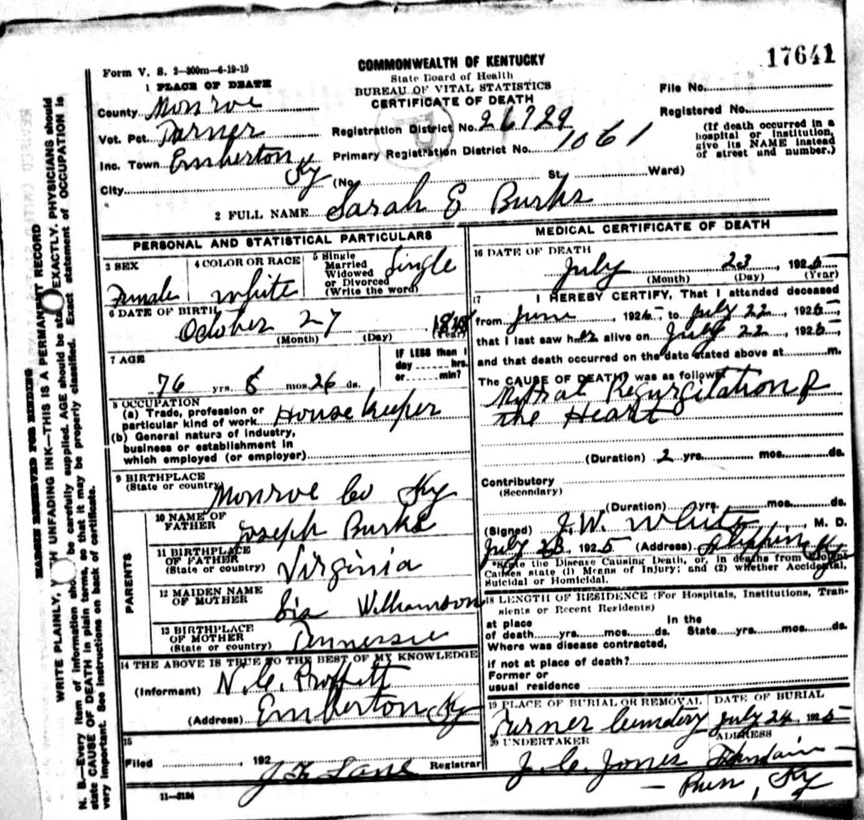 17641
Form V. S. 2—300m—6-19-19
COMMONWEALTH OF KENTUCKY
State Board of Health
BUREAU OF VITAL STATISTICS
CERTIFICATE OF DEATH
1 PLACE OF DEATH
County Monroe
Vot. Pct. Turner
Inc. Town Emberton Ky
City
Registration District No. 26729
Primary Registration District No. 1061
(No. St. Ward)
File No.
Registered No.
(If death occurred in a
hospital or institution,
give its NAME instead
of street and number.)
2 FULL NAME Sarah E Burks
PERSONAL AND STATISTICAL PARTICULARS
3 SEX
Female
4 COLOR OR RACE
white
5 Single
Married
Widowed
or Divorced
(Write the word)
Single
6 DATE OF BIRTH
October 27
(Month) (Day) (Year)
7 AGE
76 yrs. 8 mos. 26 ds.
IF LESS than 1
day hrs.
or min?
8 OCCUPATION
(a) Trade, profession or
particular kind of work House Keeper
(b) General nature of industry,
business or establishment in
which employed (or employer)
9 BIRTHPLACE
(State or country) Monroe Co Ky
PARENTS
10 NAME OF
FATHER Joseph Burks
11 BIRTHPLACE
OF FATHER
(State or country) Virginia
12 MAIDEN NAME
OF MOTHER Williamson
13 BIRTHPLACE
OF MOTHER
(State or country) Tennessee
14 THE ABOVE IS TRUE TO THE BEST OF MY KNOWLEDGE
(Informant) N. C. Proffitt
(Address) Emberton Ky
15
Filed , 192 Registrar
11-3184
MEDICAL CERTIFICATE OF DEATH
16 DATE OF DEATH
July 23, 192
(Month) (Day) (Year)
17 I HEREBY CERTIFY, That I attended deceased
from June, 192 to July 22, 192
that I last saw her alive on July 22, 192
and that death occurred on the date stated above at m.
The CAUSE OF DEATH was as follows
Mitral Regurgitation of
the Heart
(Duration) 2 yrs. mos. ds.
Contributory
(Secondary)
(Duration) yrs. mos. ds.
(Signed) J. W. White, M. D.
July 23, 1925 (Address) Ky
*State the Disease Causing Death, or, in deaths from Violent
Causes state (1) Means of Injury; and (2) whether Accidental,
Suicidal or Homicidal.
18 LENGTH OF RESIDENCE (For Hospitals, Institutions, Tran-
sients or Recent Residents)
at place In the
of death yrs. mos. ds. State yrs. mos. ds.
Where was disease contracted,
if not at place of death?
Former or
usual residence
19 PLACE OF BURIAL OR REMOVAL
Turner Cemetery
DATE OF BURIAL
July 24 1925
20 UNDERTAKER
J. C. Jones
ADDRESS
Fountain
Run, Ky
MARGIN RESERVED FOR BINDING
WRITE PLAINLY, WITH UNFADING INK—THIS IS A PERMANENT RECORD
N. B.—Every item of information should be carefully supplied. AGE should be stated EXACTLY. PHYSICIANS should
state CAUSE OF DEATH in plain terms, so that it may be properly classified. Exact statement of OCCUPATION is
very important. See instructions on back of certificate.